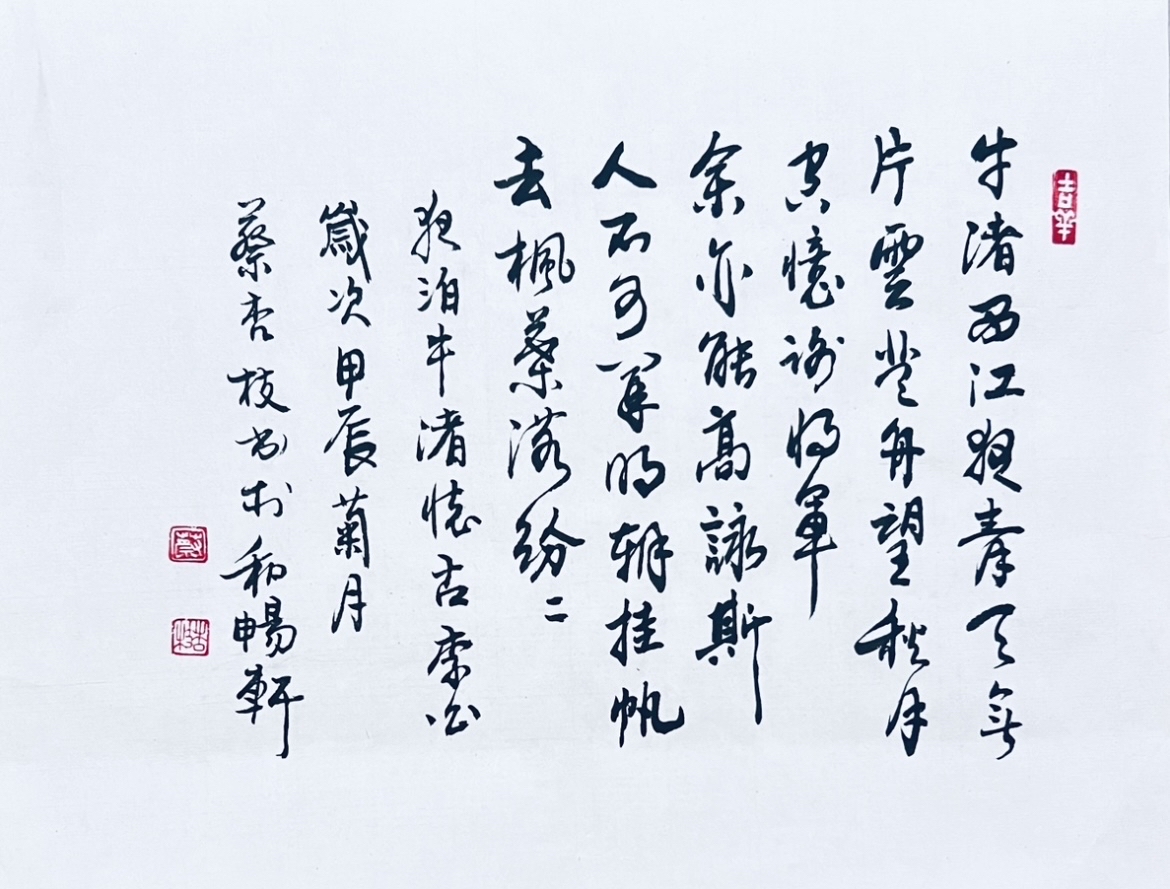 吉羊
牛渚西江夜青天無
片雲登舟望秋月
空憶謝將軍
余亦能高詠斯
人不可聞明朝挂帆
去楓葉落紛〻
夜泊牛渚懷古李白
歲次甲辰菊月
蔡杏枝書於和暢軒
蔡